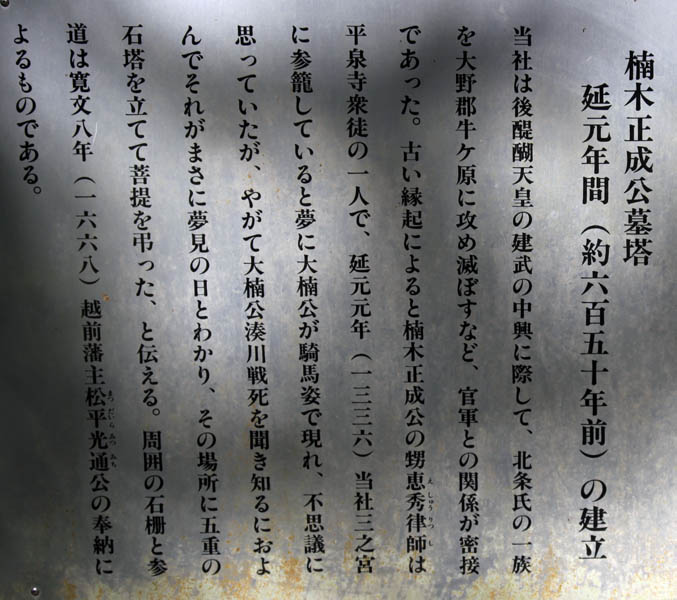 楠木正成公墓塔
延元年間（約六百五十年前）の建立
当社は後醍醐天皇の建武の中興に際して、北条氏の一族
を大野郡牛ケ原に攻め滅ぼすなど、官軍との関係が密接
であった。古い縁起によると楠木正成公の甥恵秀律師は
平泉寺衆徒の一人で、延元元年（一三三六）当社三之宮
に参籠していると夢に大楠公が騎馬姿で現れ、不思議に
思っていたが、やがて大楠公湊川戦死を聞き知るにおよ
んでそれがまさに夢見の日とわかり、その場所に五重の
石塔を立てて菩提を弔った、と伝える。周囲の石柵と参
道は寛文八年（一六六八）越前藩主松平光通公の奉納に
よるものである。